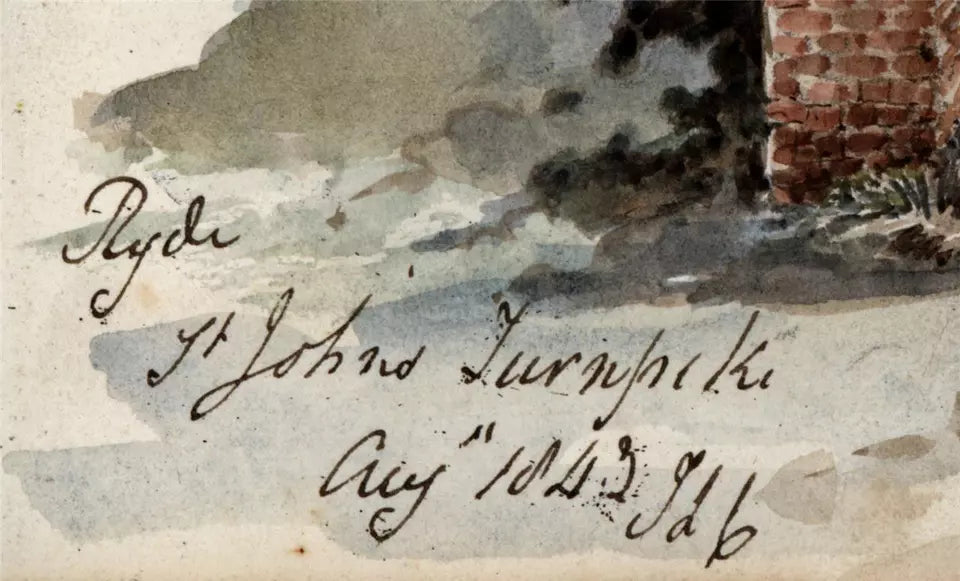 Ryde
St Johns Turnpike
Augt 1843